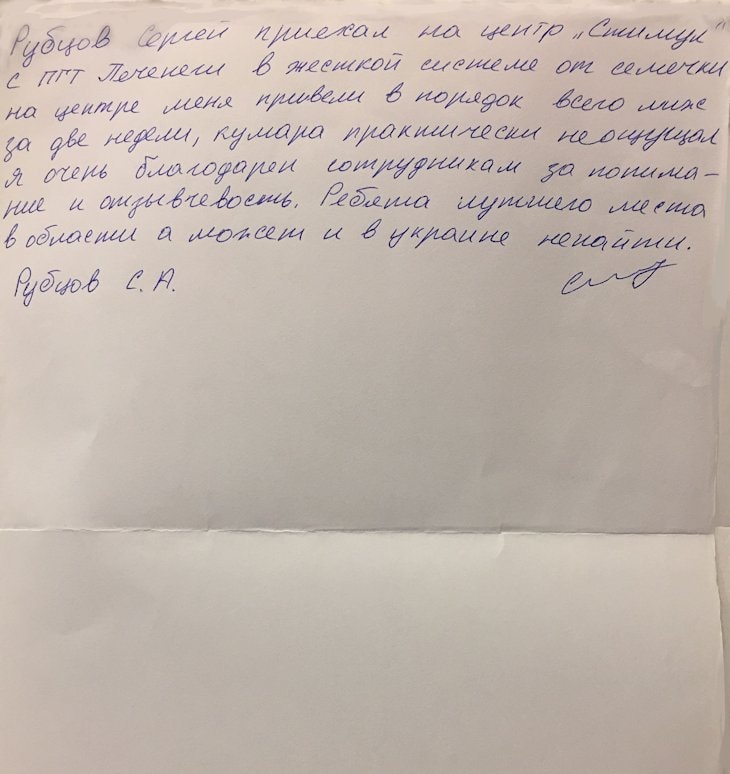 Рубцов Сергей приехал на центр „Стимул"
с ПГТ Печенеги в жесткой системе от семечки
на центре меня привели в порядок всего лиж
за две недели, кумара практически неощущал
я очень благодарен сотрудникам за понима-
ние и отзывчевость. Ребята лутшего места
в области а может и в украине ненайти.
Рубцов С. А.